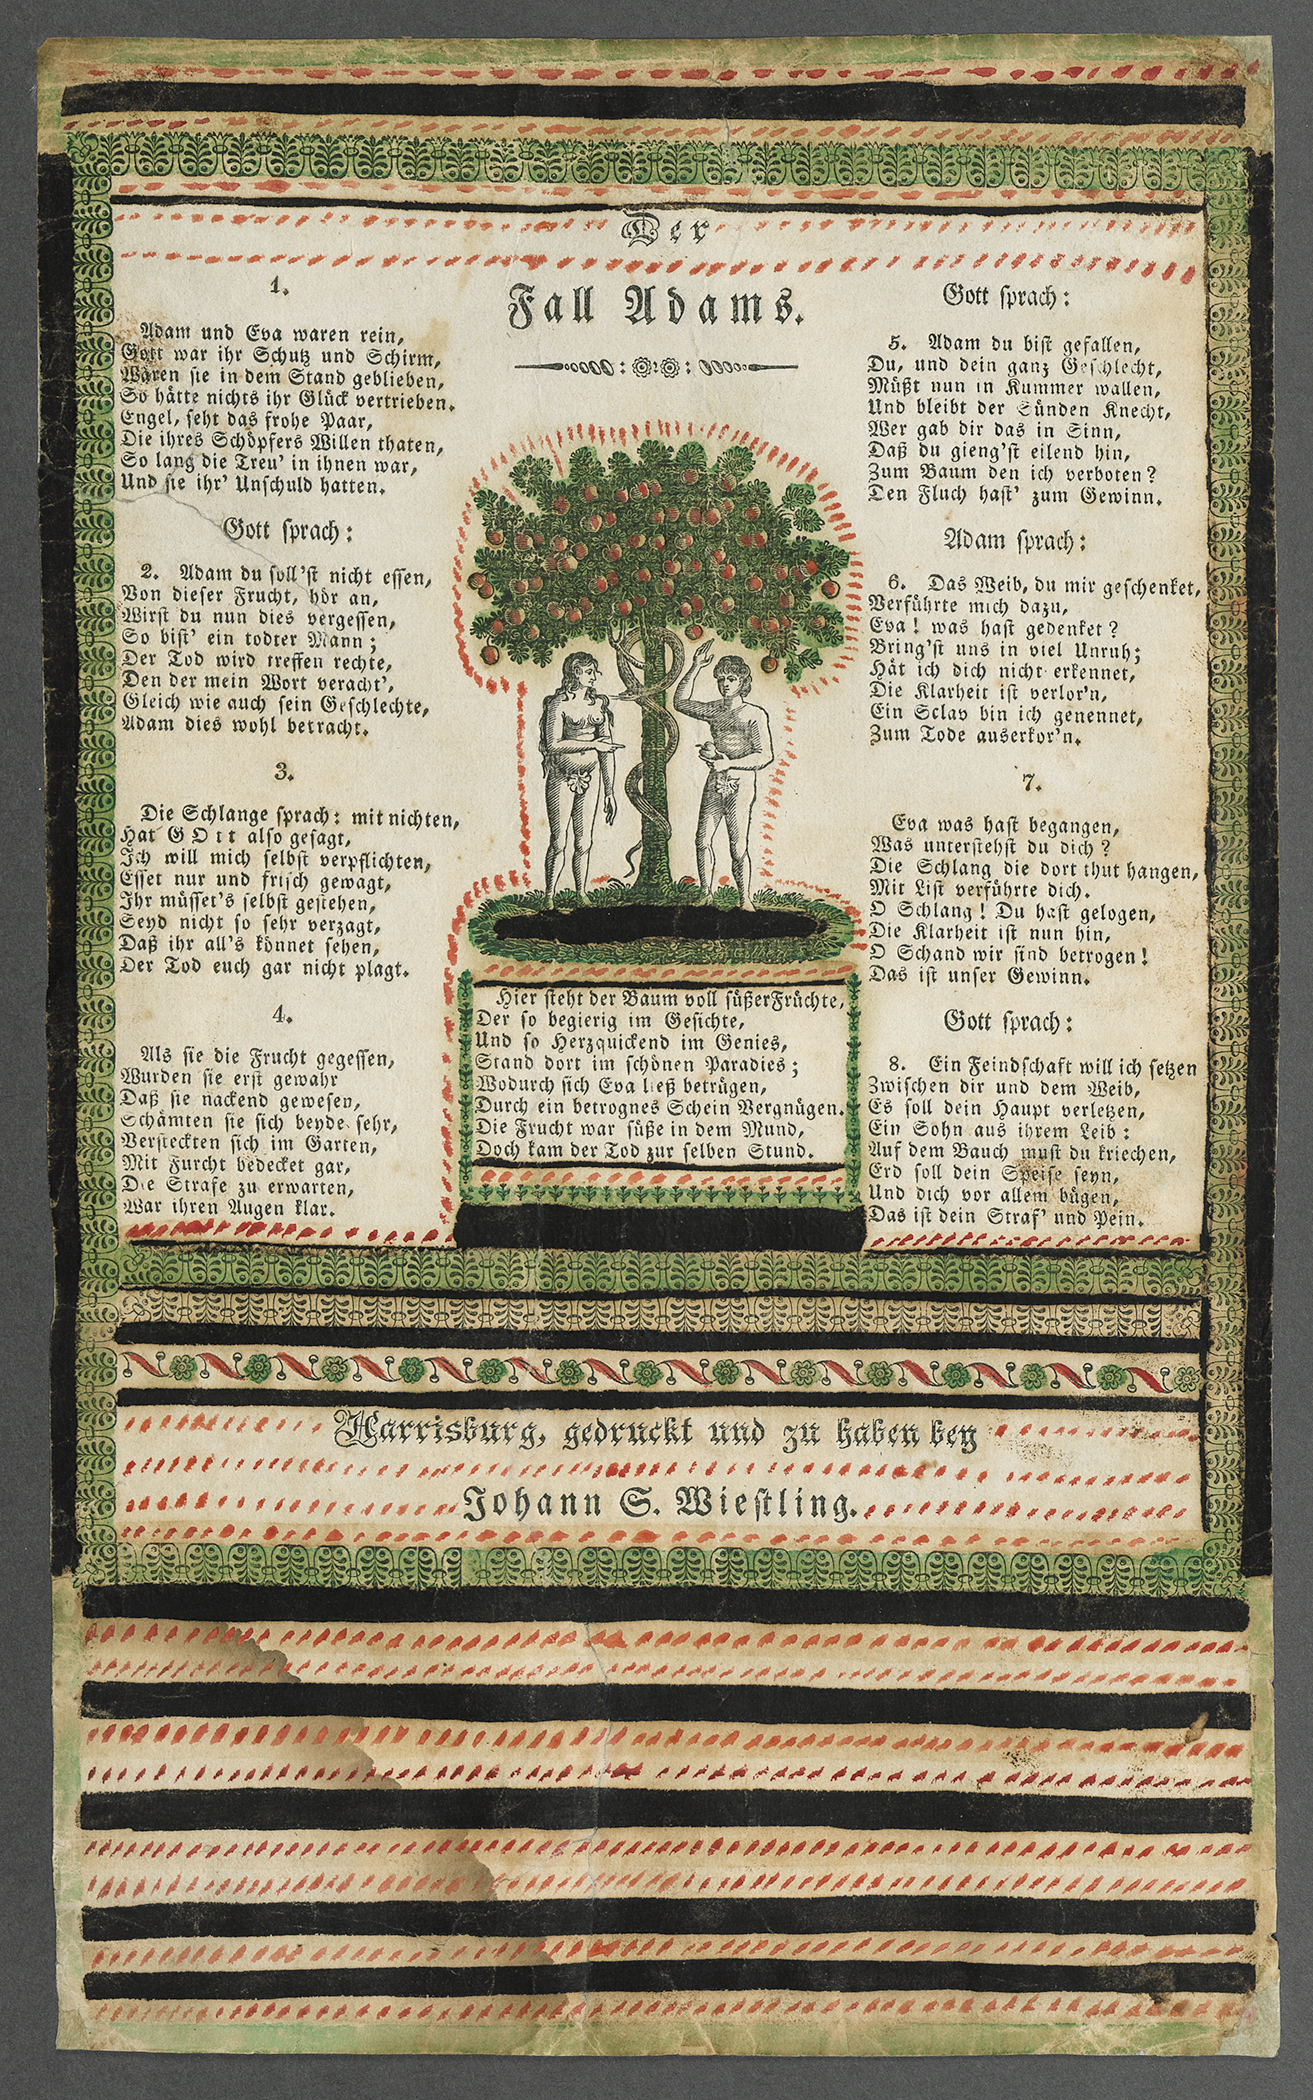 Der
Fall Adams.
1.
Adam und Eva waren rein,
Gott war ihr Schutz und Schirm,
Wären sie in dem Stand geblieben,
So hätte nichts ihr Glück vertrieben.
Engel, seht das frohe Paar,
Die ihres Schöpfers Willen thaten,
So lang die Treu' in ihnen war,
Und sie ihr' Unschuld hatten.
Gott sprach:
2. Adam du soll'st nicht essen,
Von dieser Frucht, hör an,
Wirst du nun dies vergessen,
So bist' ein todter Mann;
Der Tod wird treffen rechte,
Den der mein Wort veracht',
Gleich wie auch sein Geschlechte,
Adam dies wohl betracht.
3.
Die Schlange sprach: mit nichten,
Hat GOtt also gesagt,
Ich will mich selbst verpflichten,
Esset nur und frisch gewagt,
Ihr müsset's selbst gestehen,
Seyd nicht so sehr verzagt,
Daß ihr all's könnet sehen,
Der Tod euch gar nicht plagt.
4.
Als sie die Frucht gegessen,
Wurden sie erst gewahr
Daß sie nackend gewesen,
Schämten sie sich beyde sehr,
Versteckten sich im Garten,
Mit Furcht bedecket gar,
Die Strafe zu erwarten,
War ihren Augen klar.
Hier steht der Baum voll süßer Früchte,
Der so begierig im Gesichte,
Und so Herzquickend im Genies,
Stand dort im schönen Paradies;
Wodurch sich Eva ließ betrügen,
Durch ein betrognes Schein Vergnügen.
Die Frucht war süße in dem Mund,
Doch kam der Tod zur selben Stund.
Gott sprach:
5. Adam du bist gefallen,
Du, und dein ganz Geschlecht,
Müßt nun in Kummer wallen,
Und bleibt der Sünden Knecht,
Wer gab dir das in Sinn,
Daß du gieng'st eilend hin,
Zum Baum den ich verboten?
Den Fluch hast' zum Gewinn.
Adam sprach:
6. Das Weib, du mir geschenket,
Verführte mich dazu,
Eva! was hast gedenket?
Bring'st uns in viel Unruh;
Hät ich dich nicht erkennet,
Die Klarheit ist verlor'n,
Ein Sclav bin ich genennet,
Zum Tode auserkor'n.
7.
Eva was hast begangen,
Was unterstehst du dich?
Die Schlang die dort thut hangen,
Mit List verführte dich.
O Schlang! Du hast gelogen,
Die Klarheit ist nun hin,
O Schand wir sind betrogen!
Das ist unser Gewinn.
Gott sprach:
8. Ein Feindschaft will ich setzen
Zwischen dir und dem Weib,
Es soll dein Haupt verletzen,
Ein Sohn aus ihrem Leib:
Auf dem Bauch must du kriechen,
Erd soll dein Speise seyn,
Und dich vor allem bügen,
Das ist dein Straf' und Pein.
Harrisburg, gedruckt und zu haben bey
Johann S. Wiestling.